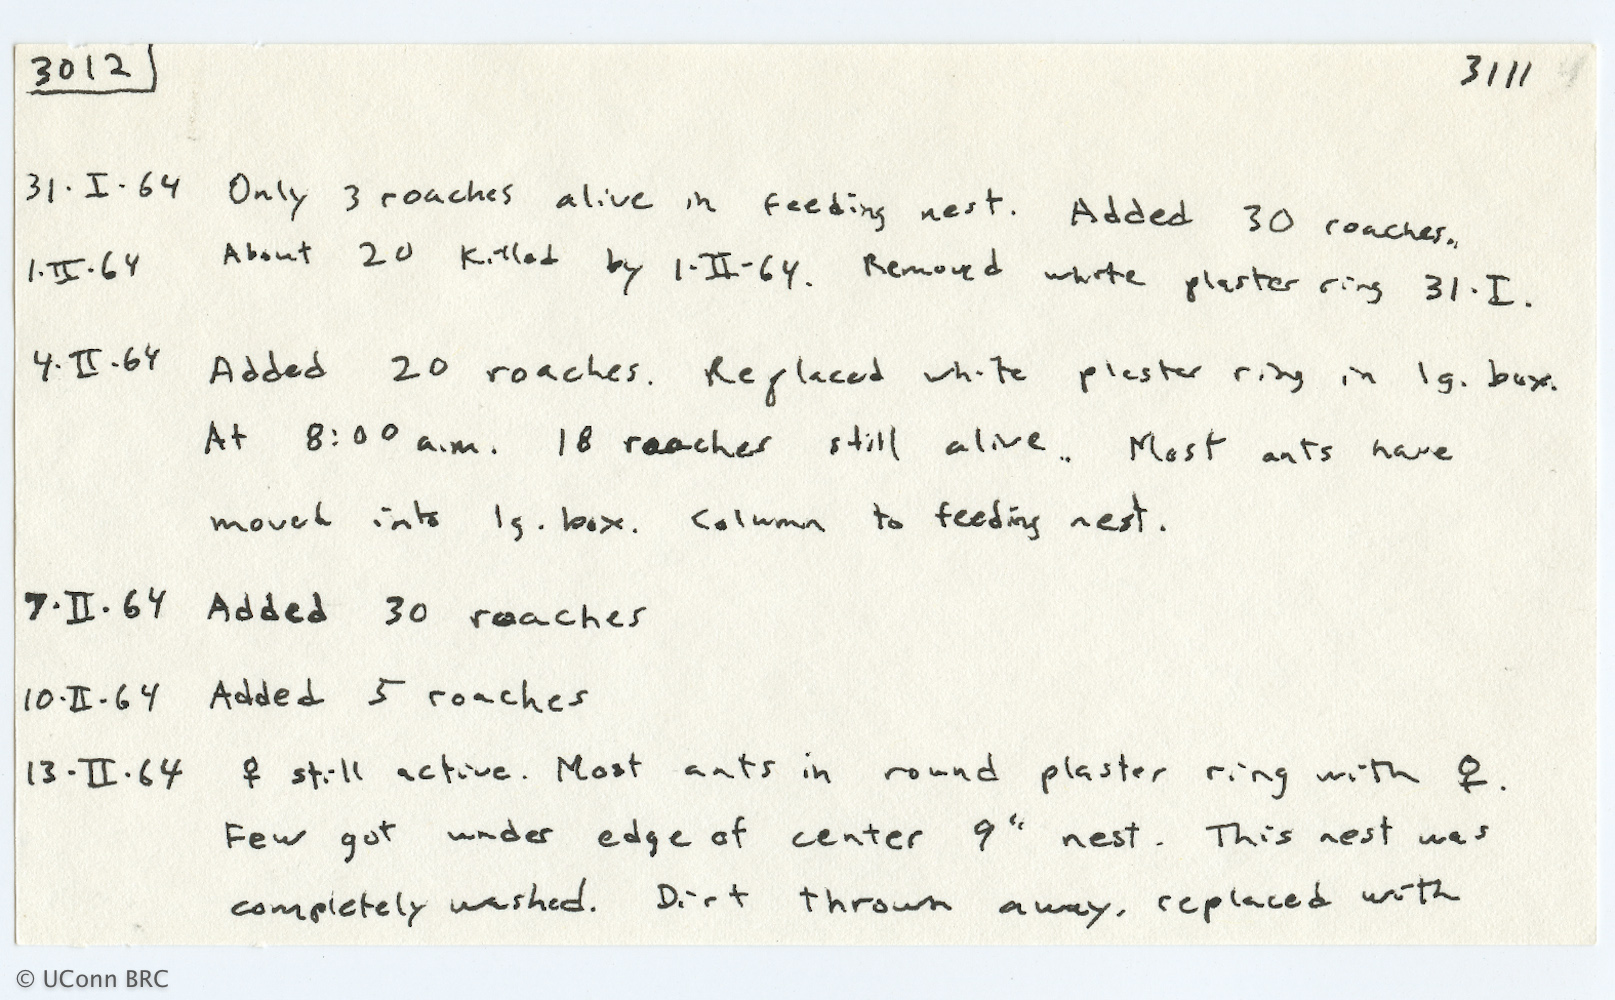 3012 3111
31·I·64 Only 3 roaches alive in feeding nest. Added 30 roaches.
1·II·64 About 20 killed by 1·II·64. Removed white plaster ring 31·I.
4·II·64 Added 20 roaches. Replaced white plaster ring in lg. box.
At 8:00 a.m. 18 roaches still alive. Most ants have
moved into lg. box. Column to feeding nest.
7·II·64 Added 30 roaches
10·II·64 Added 5 roaches
13·II·64 ♀ still active. Most ants in round plaster ring with ♀.
Few got under edge of center 9" nest. This nest was
completely washed. Dirt thrown away, replaced with
© UConn BRC